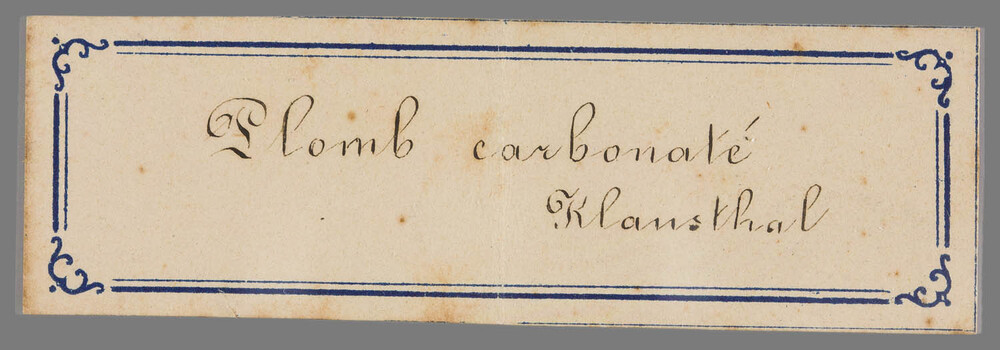 Plomb carbonaté
Klausthal